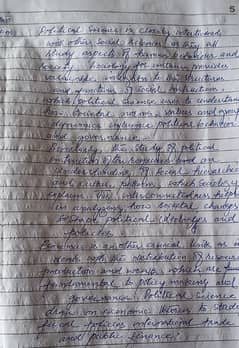 5
Political Science is closely interlinked
with other social sciences as they all
study aspects of human behaviour and
society. Sociology for instance, provides
valuable insights into the structure
and functions of social institutions
which political science uses to understand
how social norms, values and group
dynamics influence political behaviour
and governance.
Similarly the study of political
institutions often depends on
understanding of social hierarchies
and culture patterns, which sociology
explain. This interconnectedness helps
in analyzing how societal changes
political ideologies and
policies.
Economics is another crucial link as it
deals with the distribution of resources
production and wealth which are
fundamental to policy making and
governance. Political science
draws on economic theories to study
fiscal policies international trade
and public finance.